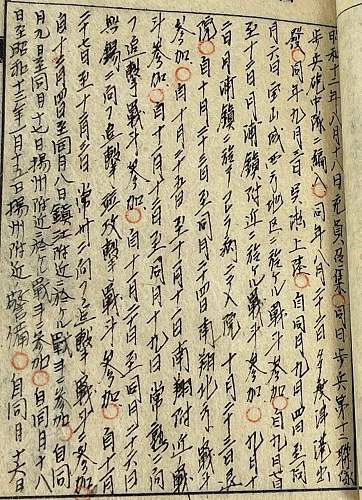 昭和十二年八月十八日充員召集○同日歩兵第十二聯隊
歩兵砲中隊ニ編入○同年八月二十二日多度津港出
發○同年九月三日呉淞上陸○自同月九月四日至同
月六日宝山城西方地区ニ於ケル戦斗参加○自九月
至十三日月浦鎮附近ニ於ケル戦斗参加○九月十
二日月浦鎮ニ於テコレラ病ニテ入院十月二十三日退
院○自十月二十三日至同月二十四日南翔北方戦斗
参加○自十月二十五日至十一月十二日南翔附近戦
斗参加○自十一月十三日至同月十九日常熟ニ向
フ追撃戦斗参加○自十一月二十日至同月二十四日
無錫ニ向フ追撃並攻撃戦斗参加○自十一月
二十七日至十二月二日常州ニ向フ追撃戦斗ニ参加
自十二月四日至同月八日鎮江附近ニ於ケル戦斗ニ参加○自同
月九日至同月十七日揚州附近ニ於ケル戦斗ニ参加○自同月十八
日至昭和十三年一月十五日揚州附近警備○自同月十六日